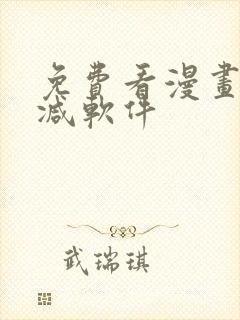 免費看漫畫
減軟件
武瑞琪